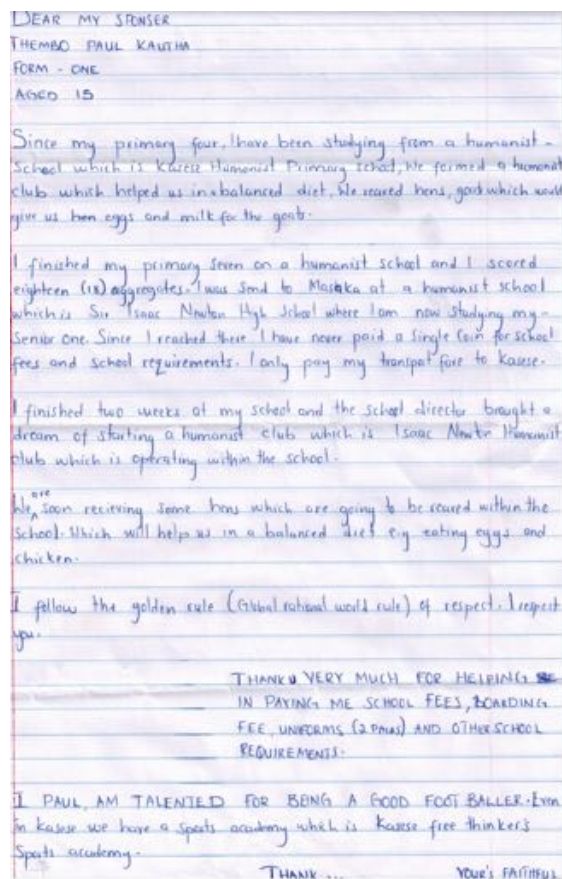 DEAR MY SPONSER
THEMBO PAUL KAUTHA
FORM - ONE
AGED 15
Since my primary four, I have been studying from a humanist -
school which is Kasese Humanist Primary school, We formed a humanist
club which helped us in a balanced diet, We reared hens, goat which would
give us hen eggs and milk for the goats.
I finished my primary seven on a humanist school and I scored
eighteen (18) aggregates. I was send to Masaka at a humanist school
which is Sir Isaac Newton High School where I am now studying my -
Senior one. Since I reached there I have never paid a single Coin for school
fees and school requirements. I only pay my transpot fare to Kasese.
I finished two weeks at my school and the school director brought a
dream of starting a humanist club which is Isaac Newton Humanist
club which is operating within the school.
We are soon recieving some hens which are going to be reared within the
School. Which will help us in a balanced diet e.g eating eggs and
chicken.
I follow the golden rule (Global rational world rule) of respect. I respect
you.
THANK U VERY MUCH FOR HELPING
IN PAYING ME SCHOOL FEES, BOARDING
FEE, UNIFORMS (2 PAIRS) AND OTHER SCHOOL
REQUIREMENTS.
I PAUL, AM TALENTED FOR BEING A GOOD FOOT BALLER. Even
in Kasese we have a Spots academy which is Kasese free thinker's
Spots academy.
THANK... YOUR'S FAITHFUL